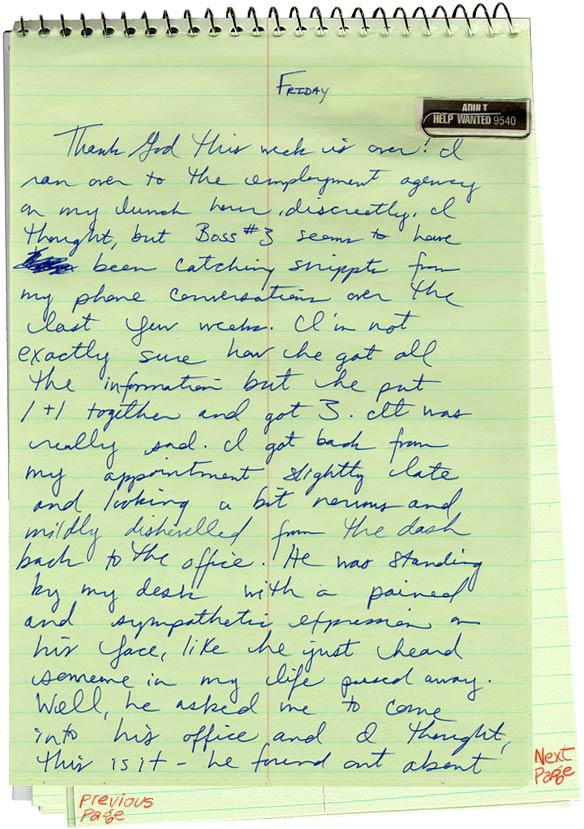 FRIDAY
ADULT
HELP WANTED 9540
Thank God this week is over! I
ran over to the employment agency
on my lunch hour, discreetly, I
thought, but Boss #3 seems to have
been catching snippts from
my phone conversations over the
last few weeks. I'm not
exactly sure how he got all
the information but he put
1+1 together and got 3. It was
really sad. I got back from
my appointment slightly late
and looking a bit nervous and
mildly dishevelled from the dash
back to the office. He was standing
by my desk with a pained
and sympathetic expression on
his face, like he just heard
someone in my life passed away.
Well, he asked me to come
into his office and I thought,
this is it - he found out about
Next
Page
Previous
Page